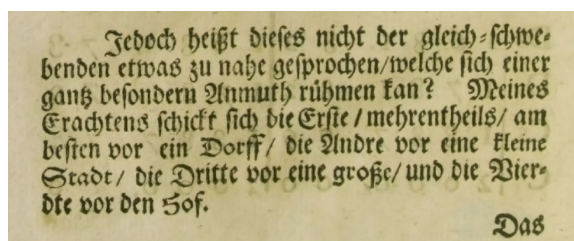 Jedoch heißt dieses nicht der gleich⸗schwe⸗
benden etwas zu nahe gesprochen/welche sich einer
gantz besondern Anmuth rühmen kan? Meines
Erachtens schickt sich die Erste / mehrentheils/ am
besten vor ein Dorff/ die Andre vor eine kleine
Stadt/ die Dritte vor eine große/ und die Vier⸗
dte vor den Hof.
Das